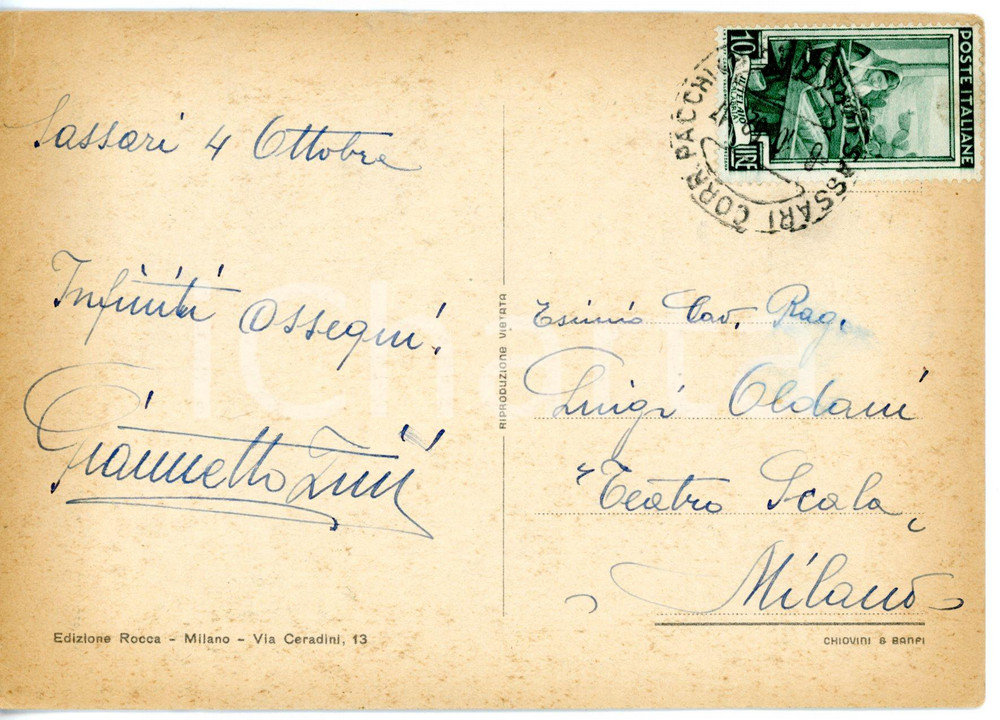 Sassari 4 Ottobre
Infiniti ossequi!
Giannetto Zini
Edizione Rocca - Milano - Via Ceradini, 13
RIPRODUZIONE VIETATA
POSTE ITALIANE
10 LIRE
SASSARI CORR. PACCHI
Esimio Cav. Rag.
Luigi Oldani
"Teatro Scala"
Milano
CHIOVINI & BANFI
iCharta